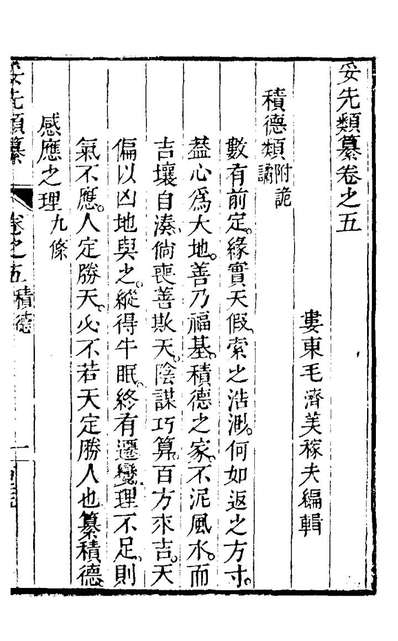 妥先類纂卷之五
婁東毛濟美稼夫編輯
積德類附詭譎
數有前定緣實天假索之浩渺何如返之方寸
葢心爲大地善乃福基積德之家不泥風水而
吉壤自湊倘喪善欺天陰謀巧算百方來吉天
偏以凶地與之縱得牛眠終有遷變理不足則
氣不應人定勝天必不若天定勝人也纂積德
感應之理九條
妥先類纂 卷之五 積德 一